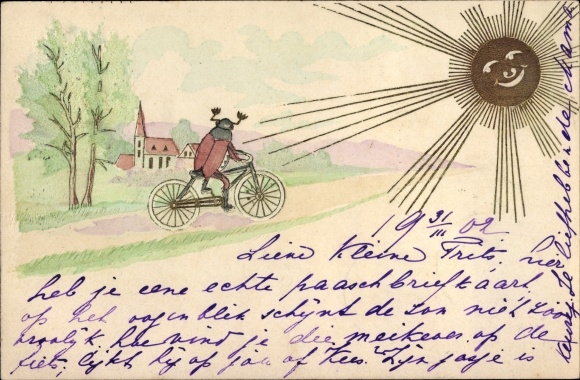 19 31/III 02
Lieve Kleine Frits, hier
heb je eene echte paaschbriefkaart,
op het oogenblik schijnt de zon niet zoo
vroolijk. hoe vind je die meikever op de
fiets, lijkt hij op jou of Kees. Zijn jasje is
je liefhebbende mama